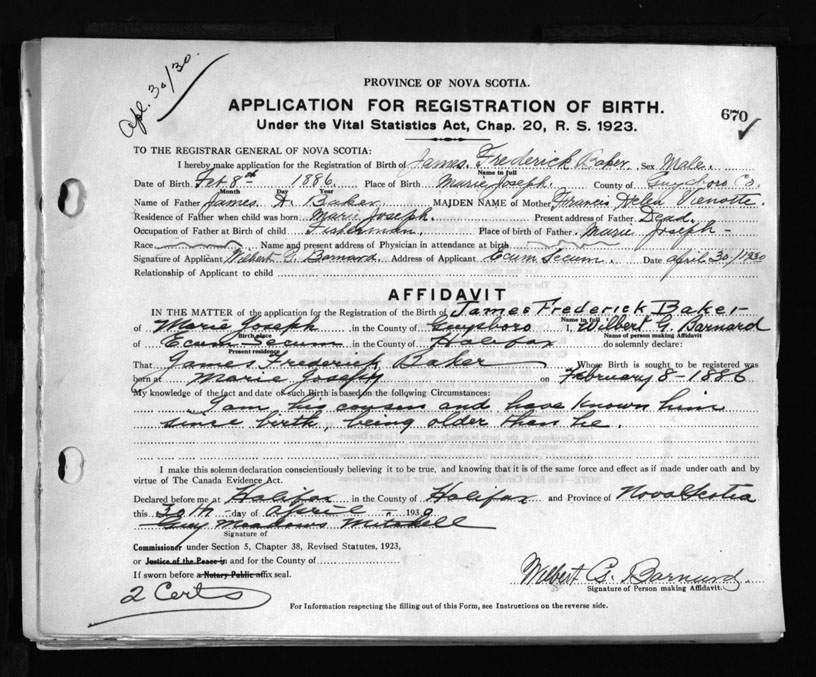 Apl. 30/30.
PROVINCE OF NOVA SCOTIA.
APPLICATION FOR REGISTRATION OF BIRTH.
670
Under the Vital Statistics Act, Chap. 20, R. S. 1923.
TO THE REGISTRAR GENERAL OF NOVA SCOTIA:
I hereby make application for the Registration of Birth of James Frederick Baker Sex Male.
Name in full
Date of Birth Feb. 8th 1886. Place of Birth Marie Joseph. County of Guysboro Co.
Month Day Year
Name of Father James H. Baker MAIDEN NAME of Mother Francis Helen
Residence of Father when child was born Marie Joseph. Present address of Father Dead.
Occupation of Father at Birth of child Fisherman. Place of birth of Father Marie Joseph -
Race Name and present address of Physician in attendance at birth
Signature of Applicant Wilbert G. Barnard. Address of Applicant Ecum Secum. Date April 30/1930
Relationship of Applicant to child
AFFIDAVIT
IN THE MATTER of the application for the Registration of the Birth of James Frederick Baker -
Name in full
of Marie Joseph in the County of Guysboro I, Wilbert G. Barnard
Birth place Name of person making Affidavit
of Ecum Secum in the County of Halifax do solemnly declare:
Present residence
That James Frederick Baker Whose Birth is sought to be registered was
born at Marie Joseph on February 8 - 1886
My knowledge of the fact and date of such Birth is based on the following Circumstances:
I am his cousin and have known him
since birth, being older than he.
I make this solemn declaration conscientiously believing it to be true, and knowing that it is of the same force and effect as if made under oath and by
virtue of The Canada Evidence Act.
Declared before me at Halifax in the County of Halifax and Province of Nova Scotia
this 30th day of April 1930
Guy Meadows Mitchell
Signature of
Commissioner under Section 5, Chapter 38, Revised Statutes, 1923,
or Justice of the Peace in and for the County of
If sworn before a Notary Public affix seal.
Wilbert G. Barnard.
Signature of Person making Affidavit.
2 Certs
For Information respecting the filling out of this Form, see Instructions on the reverse side.